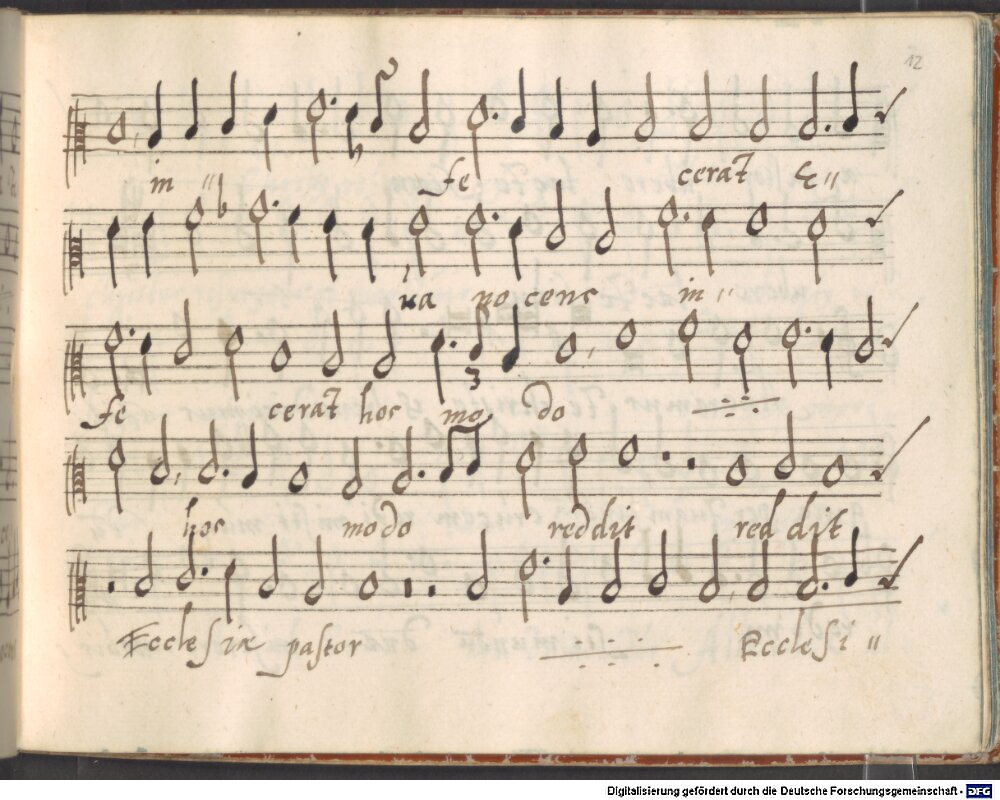 12
in " fe cerat̃ E "
ua nocens in "
fe cerat̃ hoc modo
hoc modo reddit reddit
Ecclesiæ pastor Ecclesi "
Digitalisierung gefördert durch die Deutsche Forschungsgemeinschaft - DFG